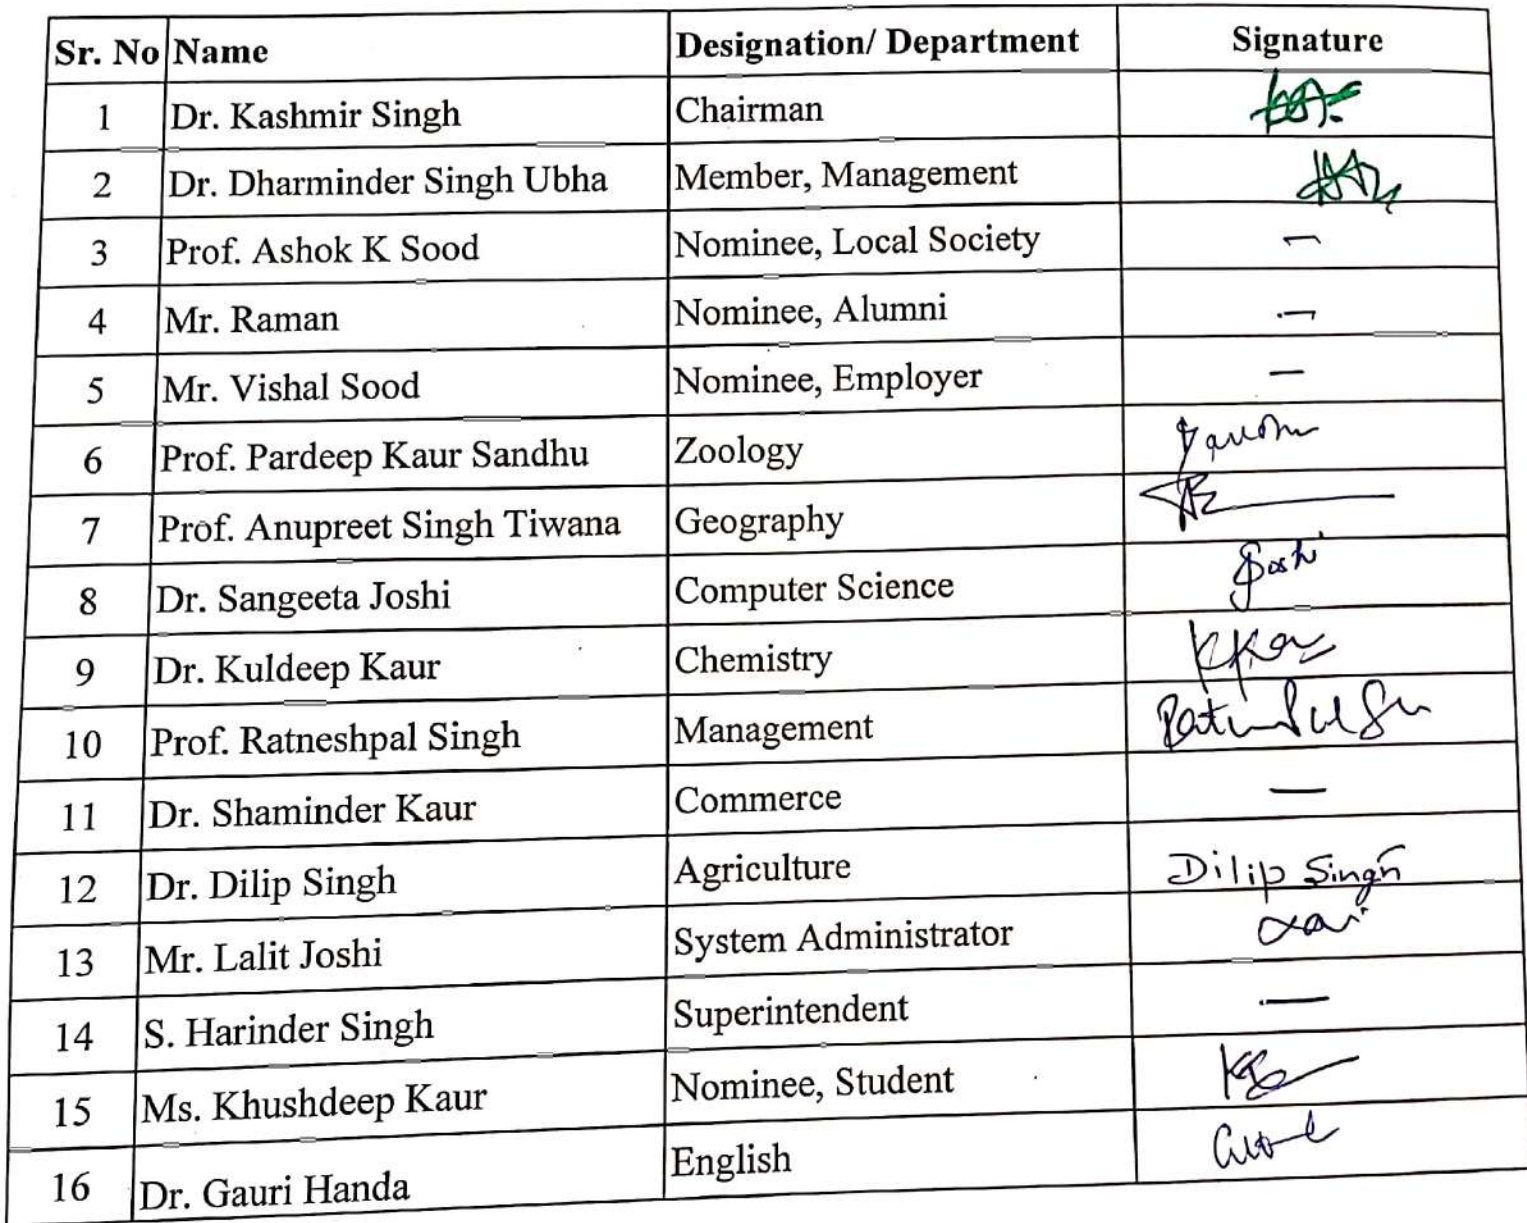 Sr. No Name Designation/ Department Signature
1 Dr. Kashmir Singh Chairman
2 Dr. Dharminder Singh Ubha Member, Management
3 Prof. Ashok K Sood Nominee, Local Society —
4 Mr. Raman Nominee, Alumni —
5 Mr. Vishal Sood Nominee, Employer —
6 Prof. Pardeep Kaur Sandhu Zoology
7 Prof. Anupreet Singh Tiwana Geography
8 Dr. Sangeeta Joshi Computer Science
9 Dr. Kuldeep Kaur Chemistry
10 Prof. Ratneshpal Singh Management
11 Dr. Shaminder Kaur Commerce —
12 Dr. Dilip Singh Agriculture Dilip Singh
13 Mr. Lalit Joshi System Administrator
14 S. Harinder Singh Superintendent —
15 Ms. Khushdeep Kaur Nominee, Student
16 Dr. Gauri Handa English